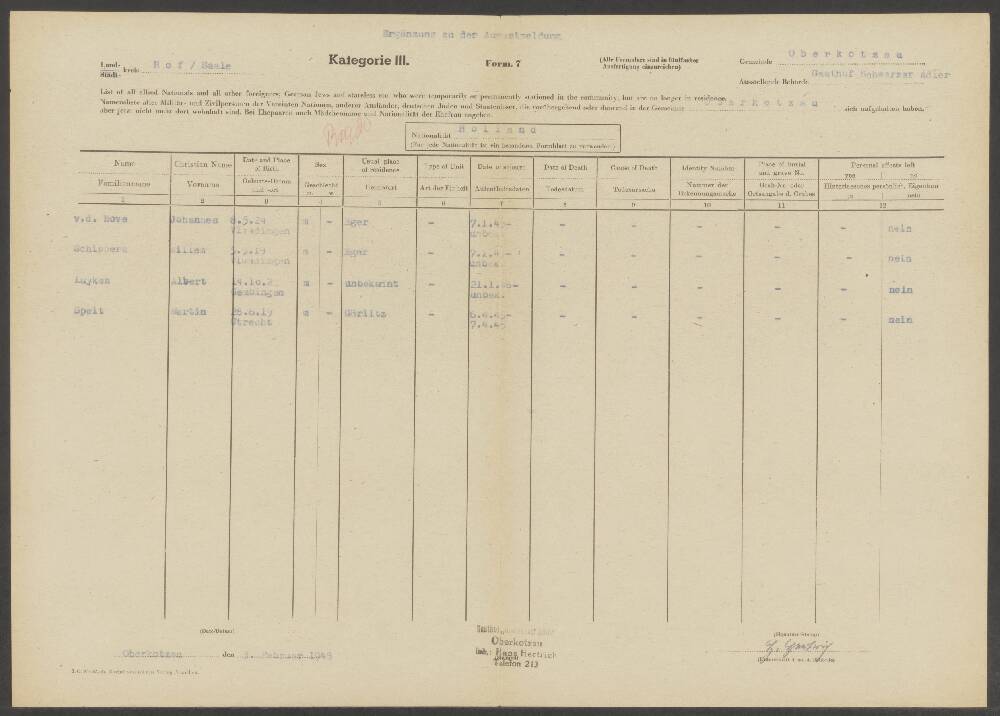 Ergänzung zu der Augustmeldung
Land-
Stadt- kreis Hof / Saale
Kategorie III.
Form. 7
(Alle Formulare sind in fünffacher
Ausfertigung einzureichen)
Gemeinde Oberkotzau
Ausstellende Behörde Gasthof Schwarzer Adler
List of all allied Nationals and all other foreigners, German Jews and stateless etc. who were temporarily or permanently stationed in the community, but are no longer in residence.
Namensliste aller Militär- und Zivilpersonen der Vereinten Nationen, anderer Ausländer, deutschen Juden und Staatenloser, die vorübergehend oder dauernd in der Gemeinde Oberkotzau sich aufgehalten haben,
aber jetzt nicht mehr dort wohnhaft sind. Bei Ehepaaren auch Mädchenname und Nationalität der Ehefrau angeben.
Nationalität Holland
(Für jede Nationalität ist ein besonderes Formblatt zu verwenden)
Name Christian Name Date and Place of Birth Sex Usual place of residence Type of Unit Date of Death Cause of Death Identity Number Place of burial and grave No. Personal effects left yes no
Familienname Vorname Geburts-Datum und -ort Geschlecht m w Heimatort Art der Einheit Aufenthaltsdaten Todesdatum Todesursache Nummer der Erkennungsmarke Grab-No. oder Ortsangabe d. Grabes Hinterlassenes persönlich. Eigentum ja nein
1 2 3 4 5 6 7 8 9 10 11 12
v.d. Hove Johannes 8.5.24 m - Eger - 7.1.45- - - - - - nein
Vlaadingen unbek.
Schippers Willem 5.9.19 - Eger - 7.1.4 - - - - - - nein
unbek.
Luyken Albert m - unbekannt - 21.1.45- - - - - - nein
unbek.
Spelt Martin 28.6.19 m - Görlitz - 6.4.45- - - - - - nein
Utrecht 7.4.45
(Date/Datum)
Oberkotzau den 3. Februar 1949
Oberkotzau
Inh.: Hans Hertrich
Telefon 213